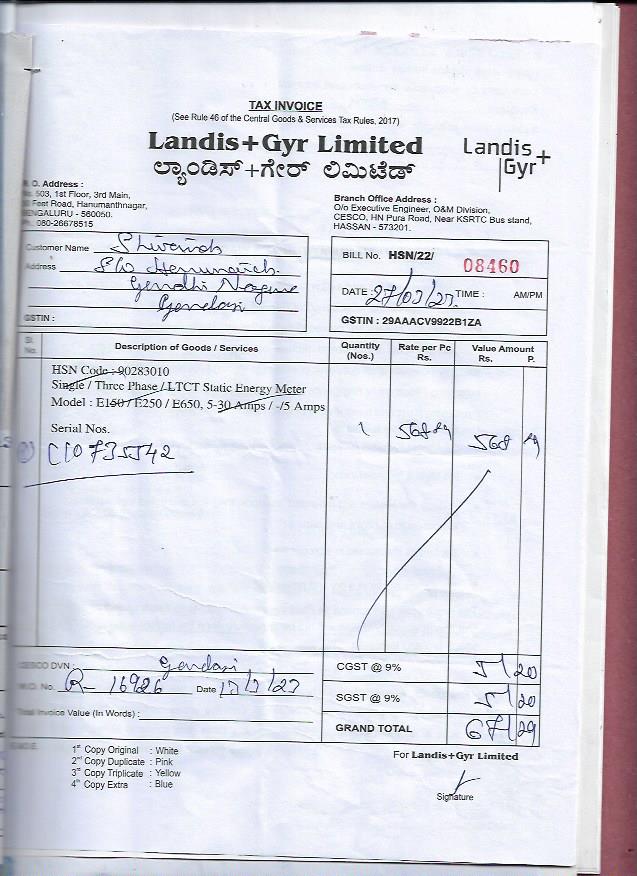 TAX INVOICE
(See Rule 46 of the Central Goods & Services Tax Rules, 2017)
Landis+Gyr Limited
ಲ್ಯಾಂಡಿಸ್+ಗೇರ್ ಲಿಮಿಟೆಡ್
Landis+
Gyr
O. Address :
503, 1st Floor, 3rd Main,
Feet Road, Hanumanthnagar,
BENGALURU - 560050.
080-26678515
Branch Office Address :
O/o Executive Engineer, O&M Division,
CESCO, HN Pura Road, Near KSRTC Bus stand,
HASSAN - 573201.
Customer Name
Address S/o
Gandhi
Gandasi
GSTIN :
BILL No. HSN/22/ 08460
DATE : TIME : AM/PM
GSTIN : 29AAACV9922B1ZA
Sl. No. Description of Goods / Services Quantity (Nos.) Rate per Pc Rs. Value Amount Rs. P.
HSN Code : 90283010
Single / Three Phase / LTCT Static Energy Meter
Model : E150 / E250 / E650, 5-30 Amps / -/5 Amps
Serial Nos. 1 568 568
CESCO DVN : Gandasi
No. R- 16926 Date
Total Invoice Value (In Words) :
CGST @ 9% 51 20
SGST @ 9% 51 20
GRAND TOTAL 671 29
1st Copy Original : White
2nd Copy Duplicate : Pink
3rd Copy Triplicate : Yellow
4th Copy Extra : Blue
For Landis+Gyr Limited
Signature